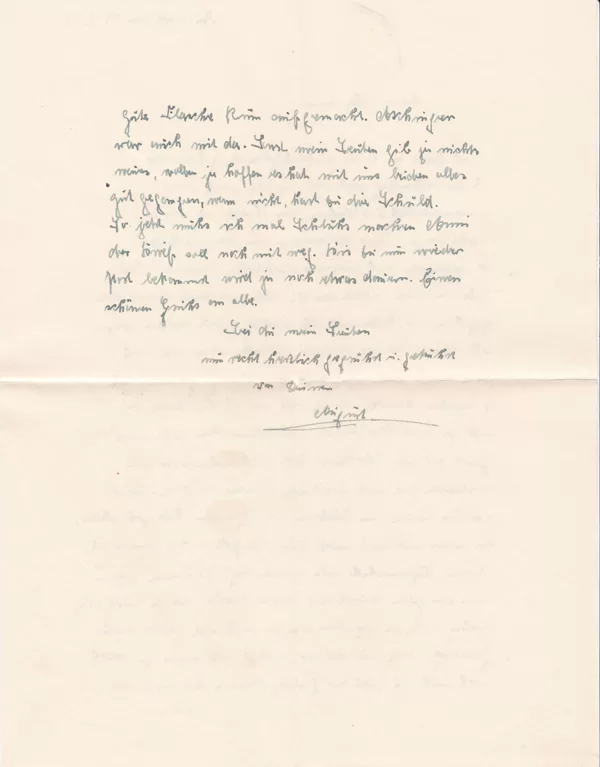 gute Flasche Rum aufgemacht. Aschinger
war auch mit da. Sonst mein Trudchen gib ja nichts
neues, wollen ja hoffen es hat mit uns beiden alles
gut gegangen, wenn nicht, hast du die Schuld.
So jetzt muß ich mal Schluß machen denn
der Brief soll noch mit weg. Bis du nun wieder
Post bekommst wird ja noch etwas dauern. Einen
schönen Gruß an alle.
Sei du mein
nun recht herzlich gegrüßt u. geküßt
von Deinem
August